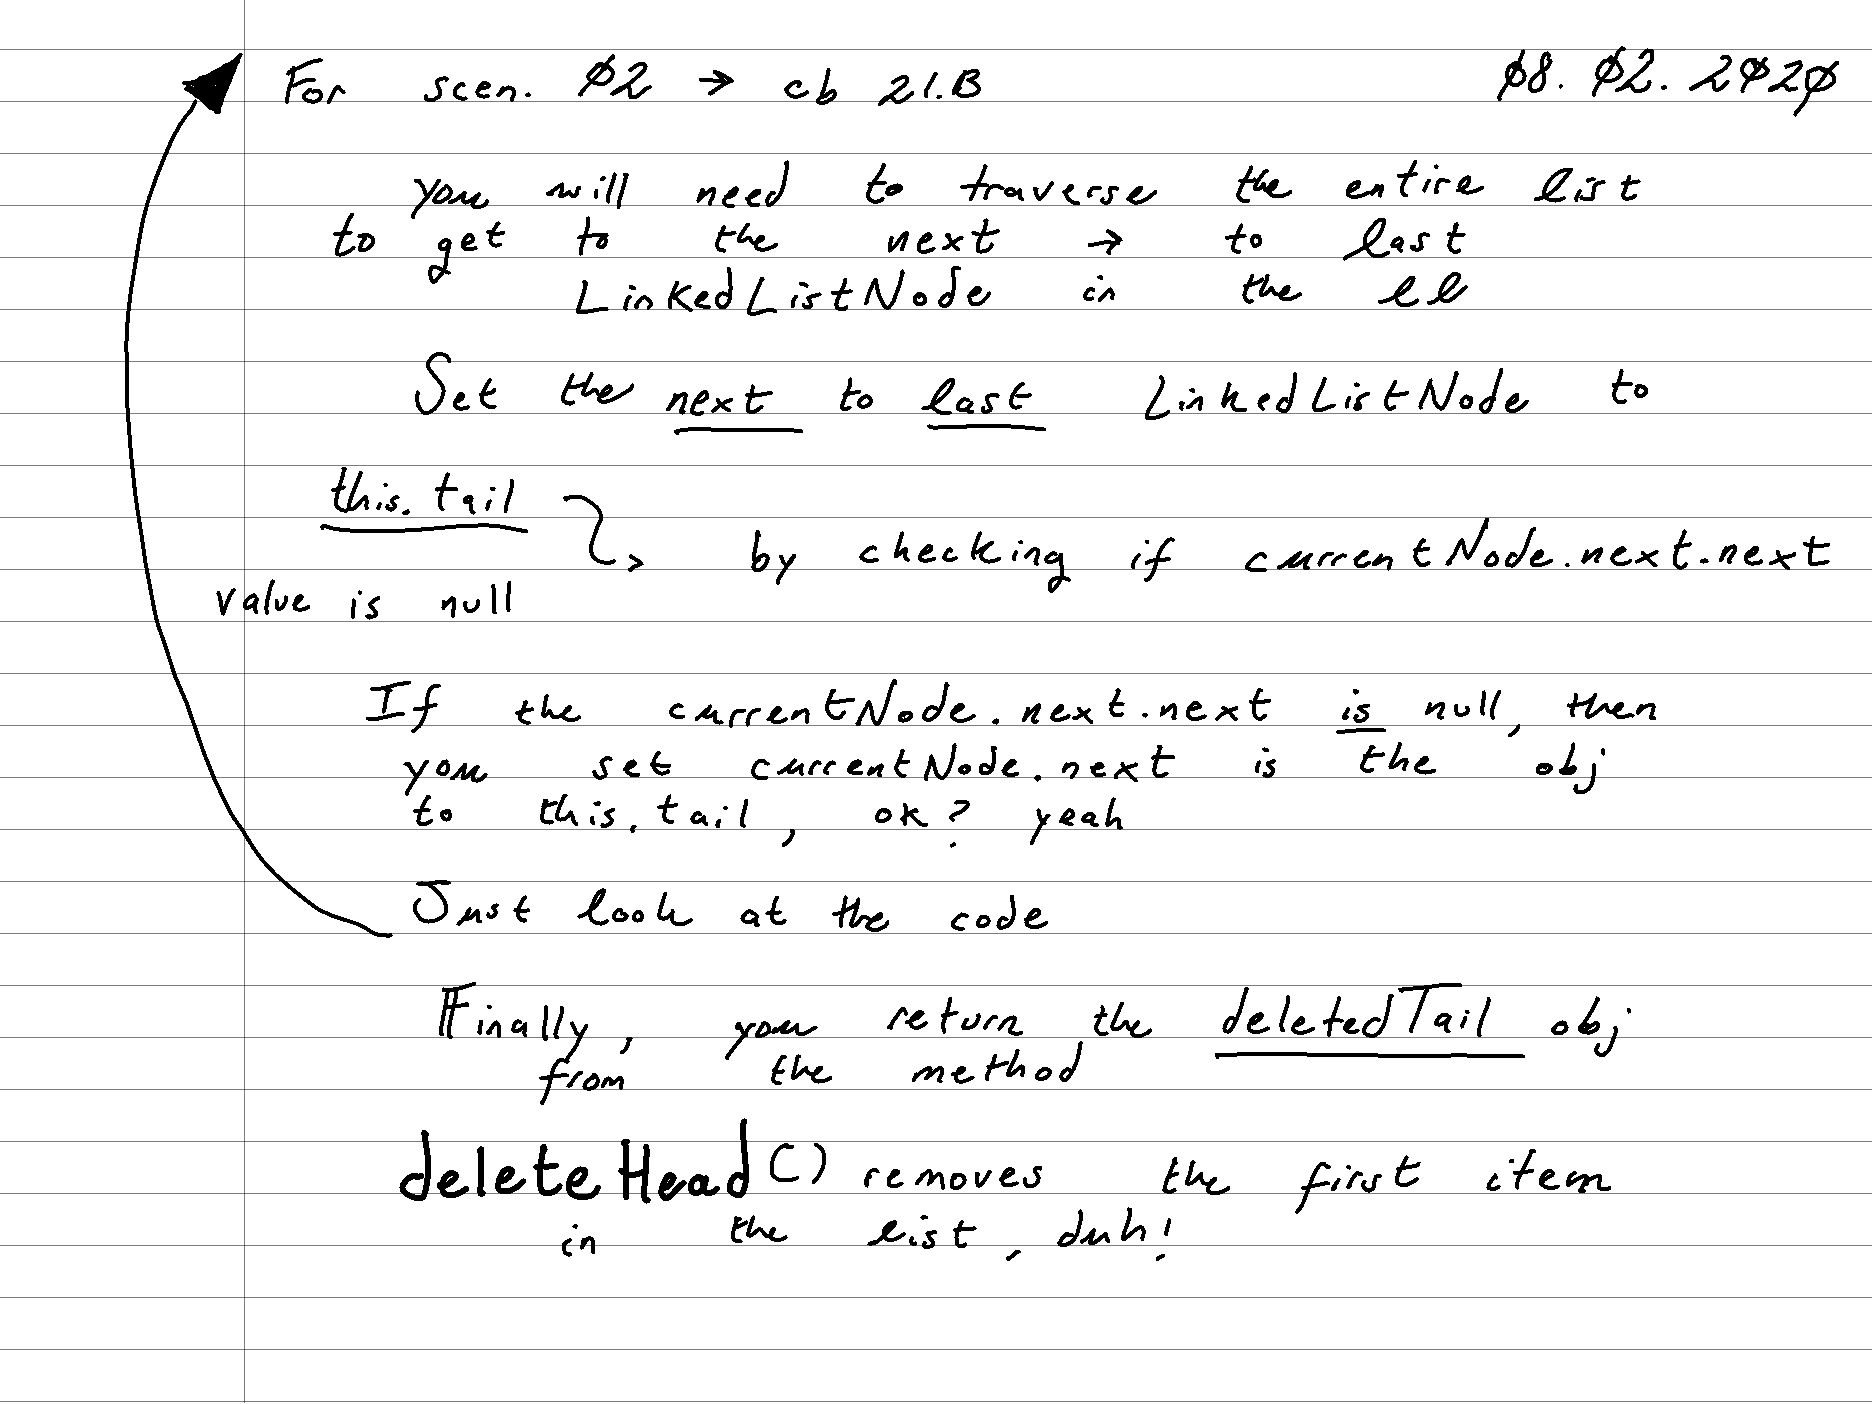 For scen. Ø2 → cb 21.B Ø8. Ø2. 2Ø2Ø
you will need to traverse the entire list
to get to the next → to last
LinkedListNode in the ll
Set the next to last LinkedListNode to
this.tail
by checking if currentNode.next.next
value is null
If the currentNode.next.next is null, then
you set currentNode.next is the obj
to this.tail, ok? yeah
Just look at the code
Finally, you return the deletedTail obj
from the method
deleteHead() removes the first item
in the list, duh!